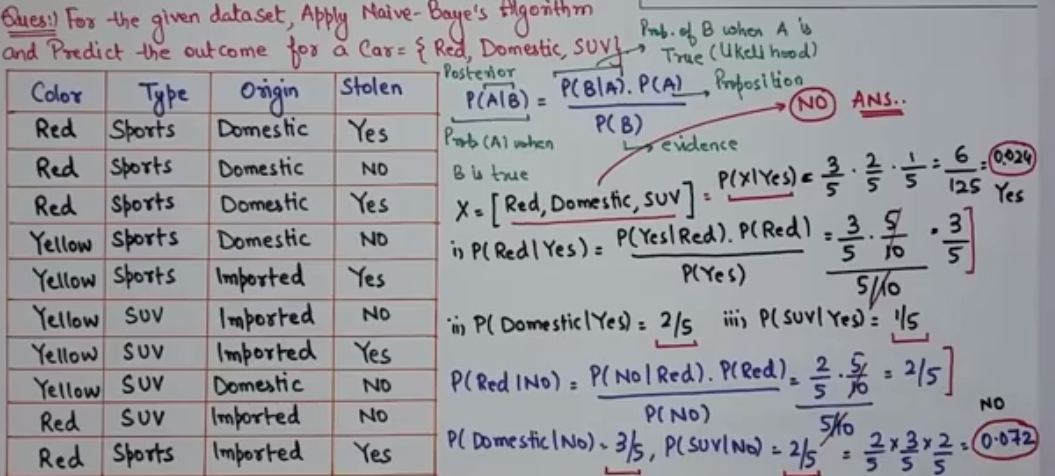 Ques:) For the given dataset, Apply Naive-Baye's Algorithm
and Predict the outcome for a Car = { Red, Domestic, SUV}
Color Type Origin Stolen
Red Sports Domestic Yes
Red Sports Domestic NO
Red Sports Domestic Yes
Yellow Sports Domestic NO
Yellow Sports Imported Yes
Yellow SUV Imported NO
Yellow SUV Imported Yes
Yellow SUV Domestic NO
Red SUV Imported NO
Red Sports Imported Yes
Prob. of B when A is
True (Likelihood)
Posterior
P(A|B) = P(B|A). P(A) / P(B)
Proposition
Prob (A) when
B is true
evidence
NO ANS..
X = [Red, Domestic, SUV] = P(X|Yes) = 3/5 . 2/5 . 1/5 = 6/125 = 0.024
Yes
i) P(Red|Yes) = P(Yes|Red). P(Red) / P(Yes) = 3/5 . 5/10 / 5/10 = 3/5]
ii) P(Domestic|Yes) = 2/5 iii) P(SUV|Yes) = 1/5
P(Red|No) = P(No|Red). P(Red) / P(No) = 2/5 . 5/10 / 5/10 = 2/5]
NO
P(Domestic|No) = 3/5, P(SUV|No) = 2/5 = 2/5 x 3/5 x 2/5 = 0.072